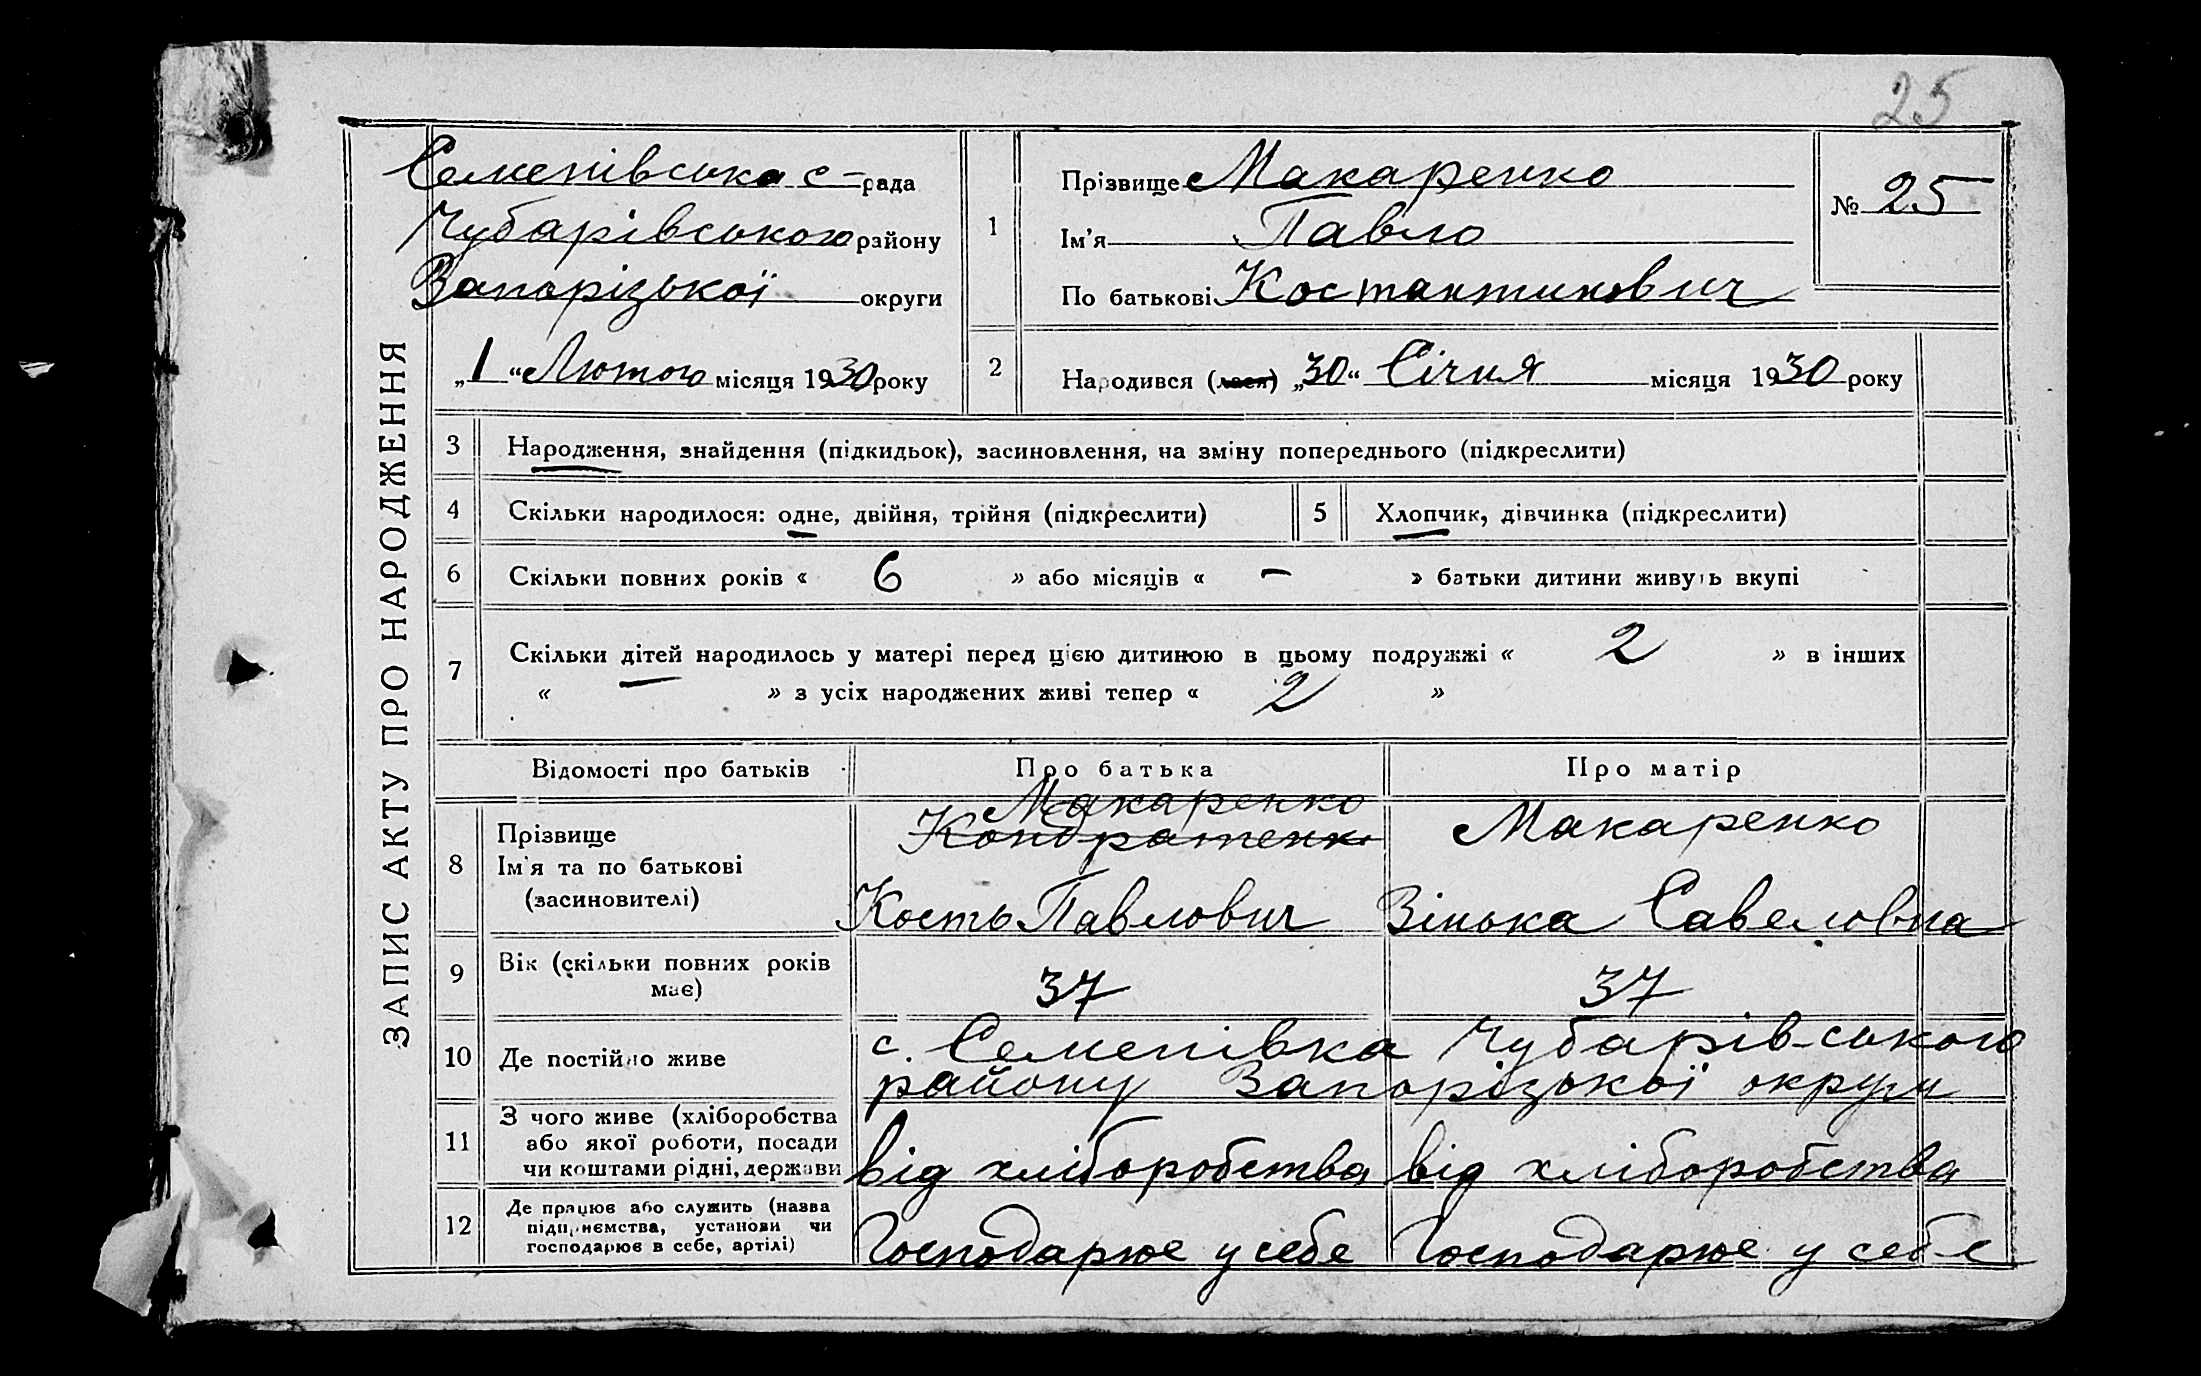 25
ЗАПИС АКТУ ПРО НАРОДЖЕННЯ
Семенівська с-рада
Чубарівського району
Запорізької округи
„1“ Лютого місяця 1930 року
1
Прізвище Макаренко
Ім'я Павло
По батькові Костантинович
№ 25
2
Народився (лася) „30“ Січня місяця 1930 року
3 Народження, знайдення (підкидьок), засиновлення, на зміну попереднього (підкреслити)
4 Скільки народилося: одне, двійня, трійня (підкреслити) 5 Хлопчик, дівчинка (підкреслити)
6 Скільки повних років « 6 » або місяців « – » батьки дитини живуть вкупі
7 Скільки дітей народилось у матері перед цією дитиною в цьому подружжі « 2 » в інших
« — » з усіх народжених живі тепер « 2 »
Відомості про батьків Про батька Про матір
8
Прізвище
Ім'я та по батькові
(засиновителі)
Макаренко
Кондратенко
Кость Павлович
Макаренко
Зінька Савеловна
9
Вік (скільки повних років
має)
37
37
10 Де постійно живе
с. Семенівка Чубарів-ського
району Запорізької округи
11
З чого живе (хліборобства
або якої роботи, посади
чи коштами рідні, держави
від хліборобства
від хліборобства
12
Де працює або служить (назва
підприємства, установи чи
господарює в себе, артілі)
Господарює у себе
Господарює у себе